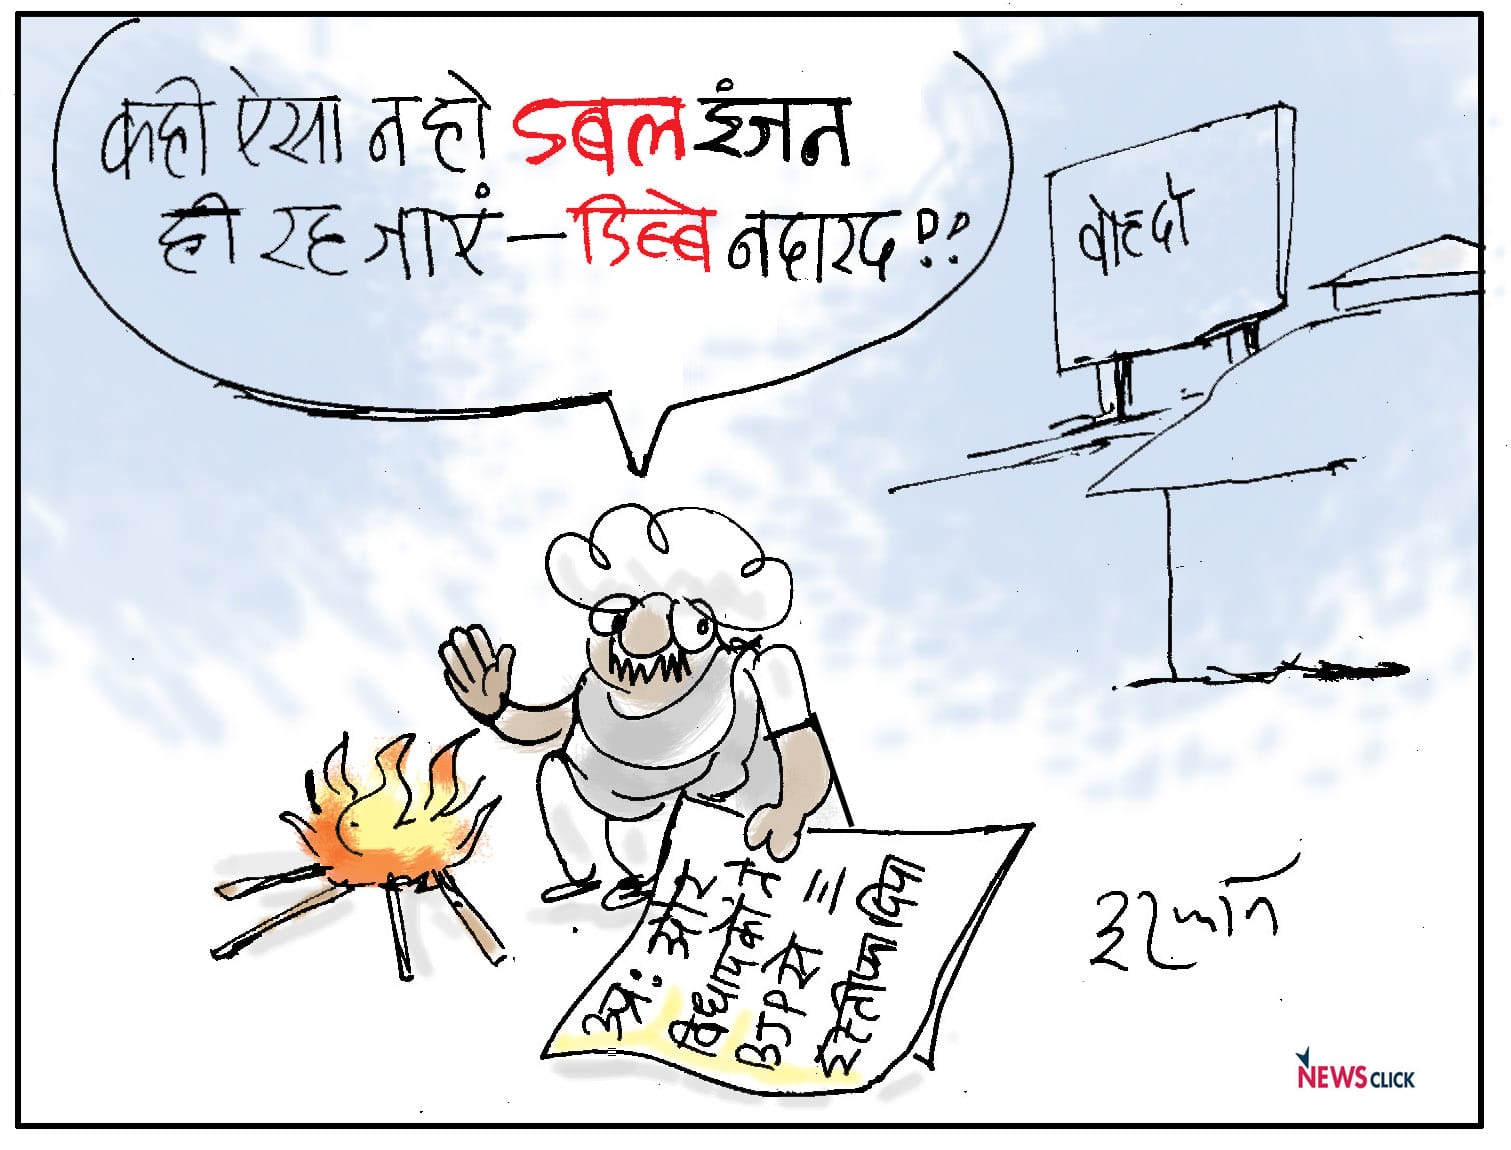 कही ऐसा न हो डबल इंजन
ही रह जाएं – डिब्बे नदारद !!
वोट दो
उप्र: और
विधायकों ने
BJP से
इस्तीफा दिया
इरफान
NEWSCLICK